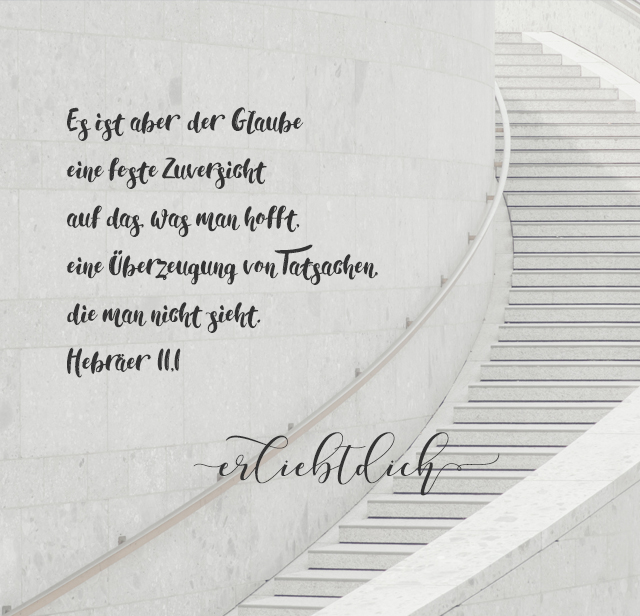 Es ist aber der Glaube
eine feste Zuversicht
auf das, was man hofft,
eine Überzeugung von Tatsachen,
die man nicht sieht.
Hebräer 11,1
erliebtdich